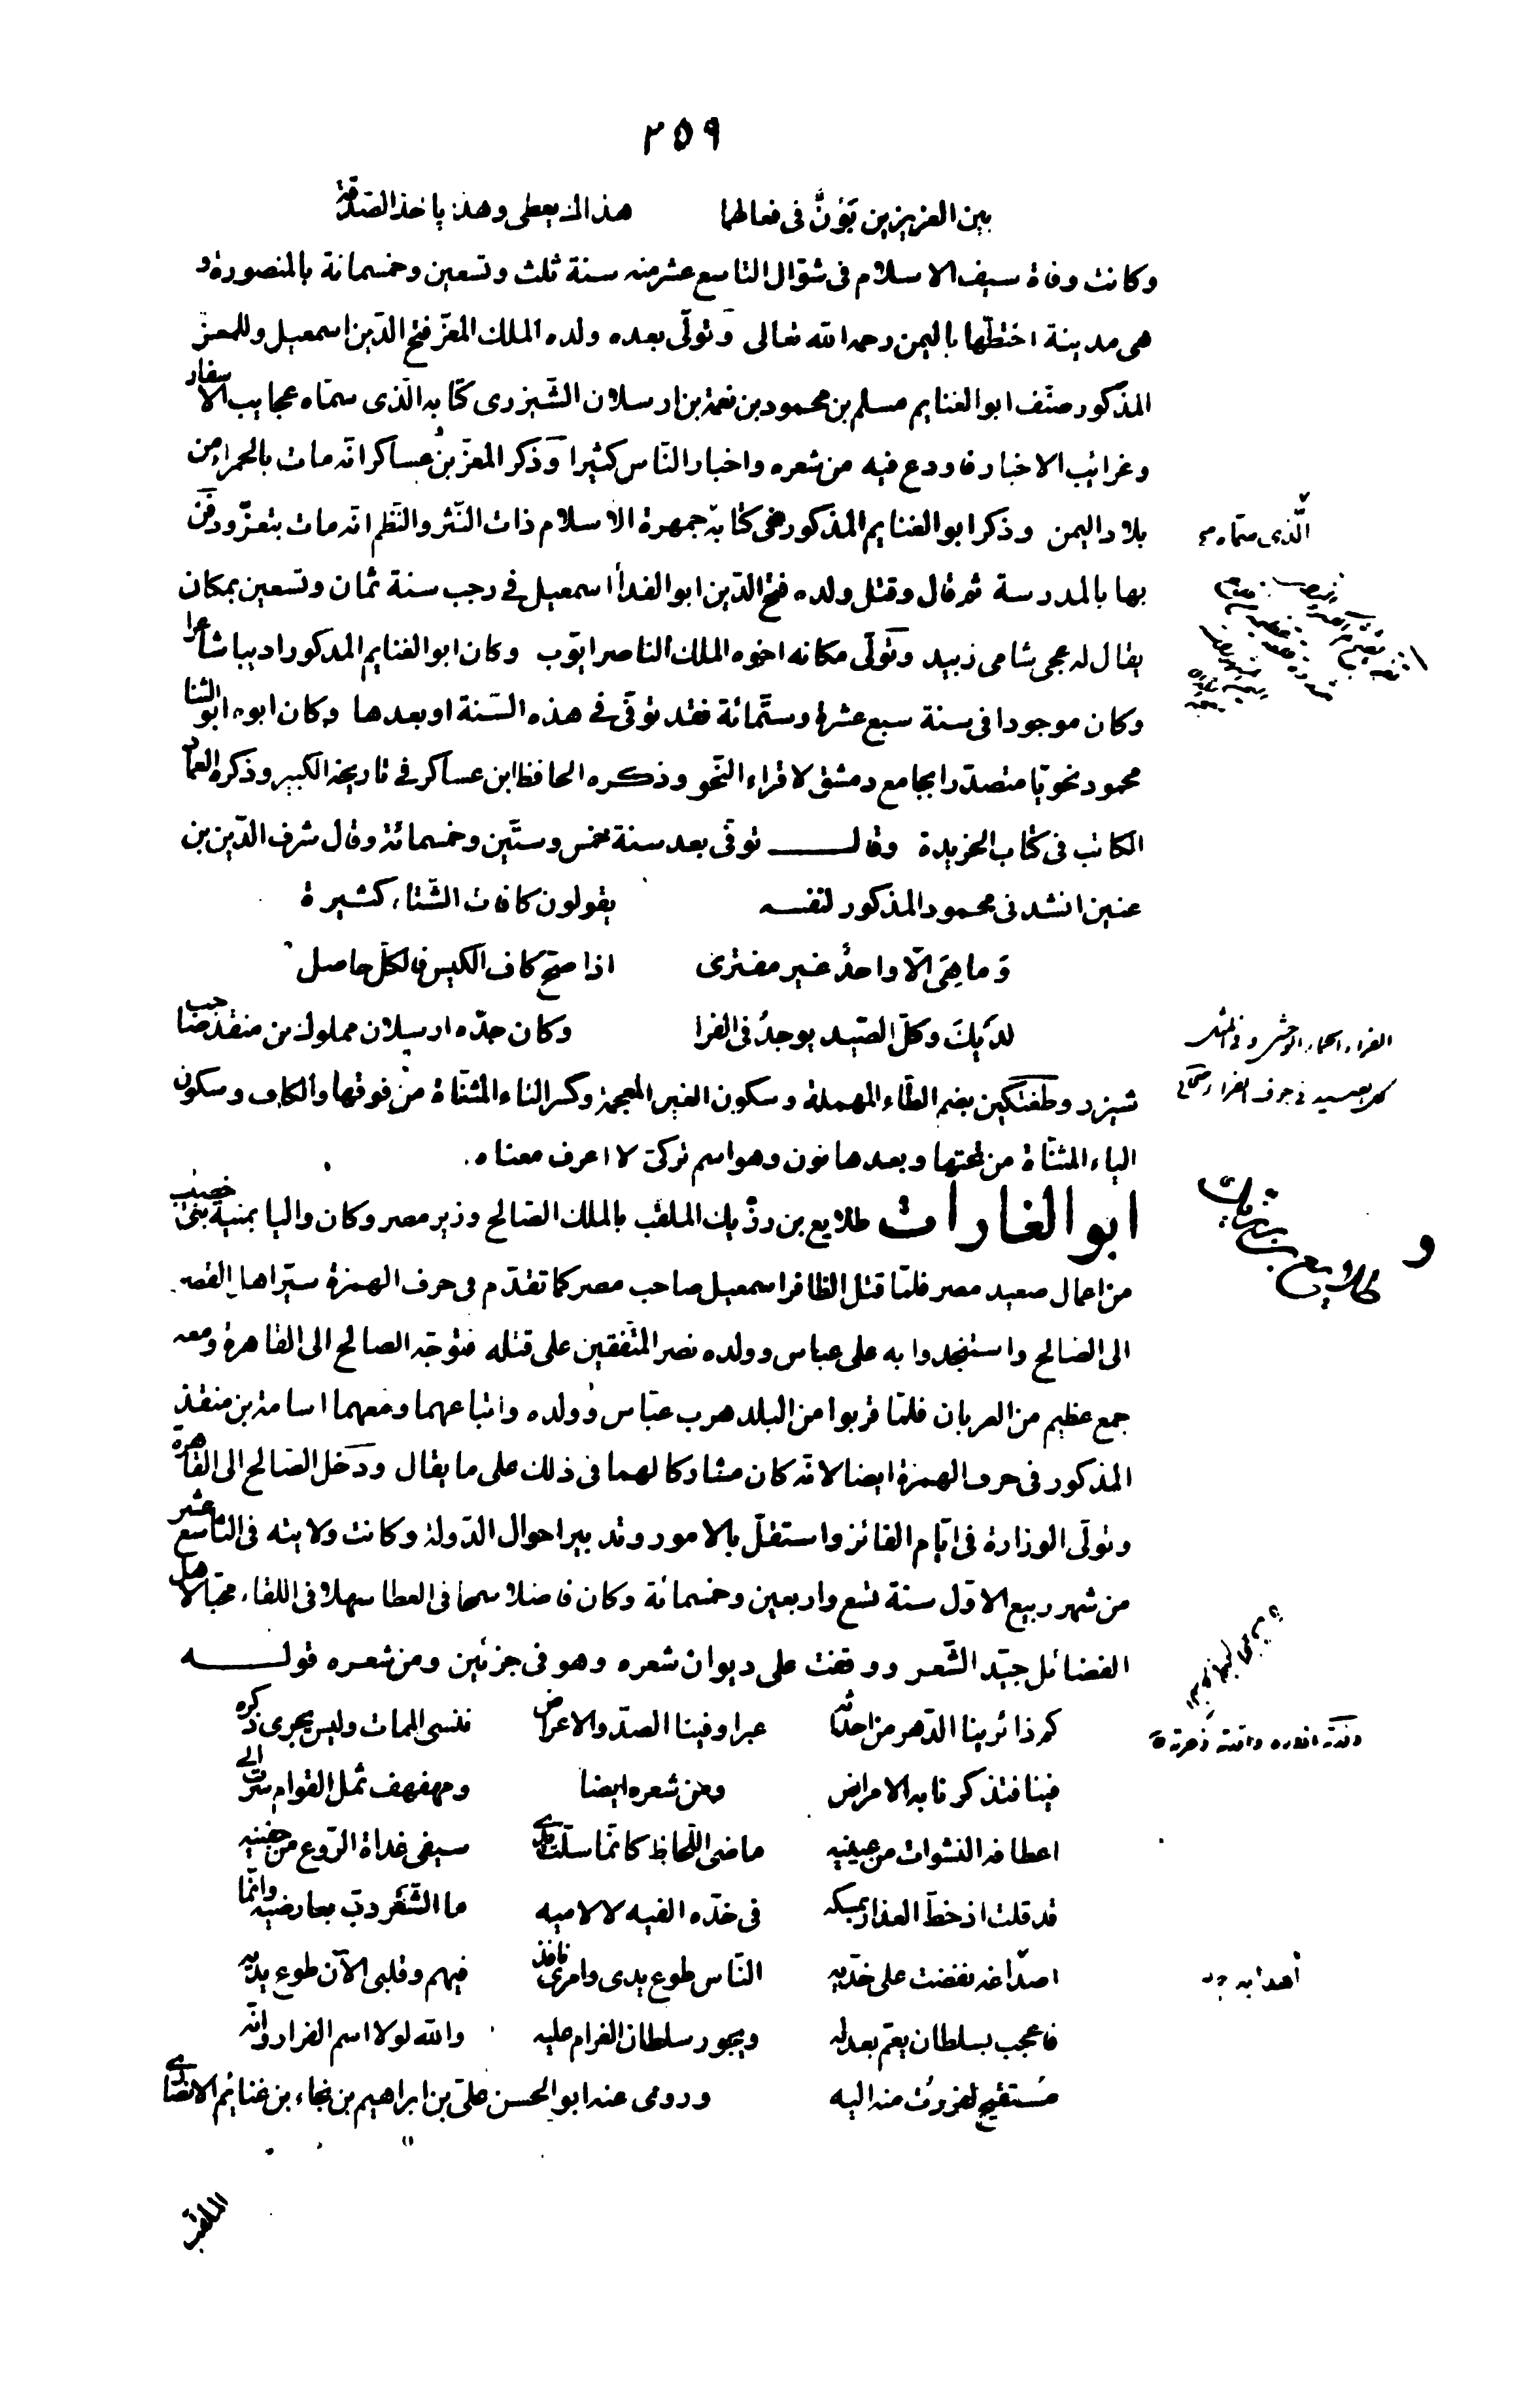 ٢٥٩
بين العزيزين بَوْنٌ فى فعالهما هذاك يعطى وهذا ياخذ الصّدقة
وكانت وفاة سيف الاسلام فى شوّال التاسع عشر منه سنة ثلث وتسعين وخمسمائة بالمنصورة و
هى مدينة اختطّها باليمن رحمه الله تعالى وتولّى بعده ولده الملك المعزّ فتح الدّين اسمعيل وللمعزّ
المذكور صنّف ابو الغنايم مسلم بن محمود بن نعمة بن ارسلان الشّيزرى كتابه الّذى سمّاه عجايب الاسفار
وغرائب الاخبار فاودع فيه من شعره واخبار النّاس كثيرا وذكر المعزّ بن عساكر انّه مات بالحمراء من
بلاد اليمن وذكر ابو الغنايم المذكور فى كتابه جمهرة الاسلام ذات النّثر والنّظم انّه مات بتعزّ ودفن
بها بالمدرسة ثم قال وقتل ولده فتح الدّين ابو الفدأ اسمعيل فى رجب سنة ثمان وتسعين بمكان
يقال له عجى شامى زبيد وتولّى مكانه اخوه الملك الناصر ايّوب وكان ابو الغنايم المذكور اديبا شاعرا
وكان موجودا فى سنة سبع عشرة وستّمائة فقد توفّى فى هذه السّنة او بعدها وكان ابوه ابو الثنا
محمود نحويّا متصدّرا بجامع دمشق لاقراء النّحو وذكره الحافظ ابن عساكر فى تاريخه الكبير وذكره العماد
الكاتب فى كتاب الخريدة وقال توفّى بعد سنة خمس وستّين وخمسمائة وقال شرف الدّين بن
عنين انشدنى محمود المذكور لنفسه يقولون كافات الشّتاء كثيرة
وَما هِىَ الّا واحدٌ غير مفترى اذا صحّ كاف الكيس فالكلّ حاصل
لدَيكَ وكلّ الصّيد يوجدُ فى الفرا وكان جدّه ارسلان مملوك بن منقذ صاحب
شيزر وطغتكين بضم الطّاء المهملة وسكون الغين المعجمة وكسر التاء المثنّاة من فوقها والكاف وسكون
الياء المثنّاة من تحتها وبعدها نون وهو اسم تركىّ لا اعرف معناه
ابو الغارات طلايع بن رزّيك الملقب بالملك الصّالح وزير مصر وكان واليا بمنية بنى خصيب
من اعمال صعيد مصر فلمّا قتل الظافر اسمعيل صاحب مصر كما تقدّم فى حرف الهمزة سيّر اهل القصر
الى الصّالح واستنجدوا به على عباس وولده نصر المتّفقين على قتله فتوجّه الصالح الى القاهرة ومعه
جمع عظيم من العربان فلمّا قربوا من البلد هرب عبّاس وولده واتباعهما ومعهما اسامة بن منقذ
المذكور فى حرف الهمزة ايضا لانّه كان مشاركا لهما فى ذلك على ما يقال ودخل الصّالح الى القاهرة
وتولّى الوزارة فى ايّام الفائز واستقلّ بالامور وتدبير احوال الدّولة وكانت ولايته فى التاسع عشر
من شهر ربيع الاوّل سنة تسع واربعين وخمسمائة وكان فاضلا سمحا فى العطا سهلا فى اللقاء محبّا لاهل
الفضائل جيّد الشّعر ووقفت على ديوان شعره وهو فى جزئين ومن شعره قوله
كم ذا يُرينا الدّهر من احداثه عبرا وفينا الصدّ والاعراض ننسى الممات وليس يجرى ذكره
فينا فتذكرنا به الامراض ومن شعره ايضا ومهفهف ثمل القوام سرت الى
اعطافه النشوات من عينيه ماضى اللّحاظ كانّما سلّت يدى سيفى غداة الرّوع من جفنيه
قد قلت اذ خطّ العذار بمسكه فى خدّه الفيه لا لاميه ما الشّعر دبّ بعارضيه وانّما
اصداغه نفضت على خدّيه النّاس طوع يدى وامرى نافذ فيهم وقلبى الآن طوع يديه
فاعجب بسلطان يعمّ بعدله ويجور سلطان الغرام عليه والله لولا اسم الفرار وانّه
مُستقبح لفررتُ منه اليه وروى عنه ابو الحسن علىّ بن ابراهيم بن نجاء بن غنائم الانصارى
الملقب
الّذى سمّاه
الفراء الحمار الوحشى وفى المثل
كل الصيد فى جوف الفراء
و طلايع بن رزيك
أهدابه